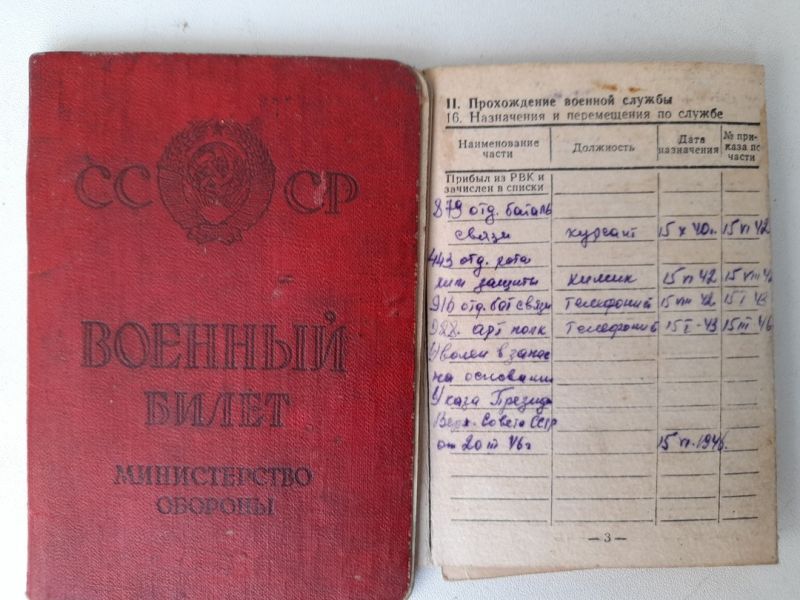 СССР
ВОЕННЫЙ
БИЛЕТ
МИНИСТЕРСТВО
ОБОРОНЫ
II. Прохождение военной службы
16. Назначения и перемещения по службе
Наименование части Должность Дата назначения № приказа по части
Прибыл из РВК и
зачислен в списки
879 отд. баталь
связи курсант 15 X 40г. 15 VI 42
443 отд. рота
хим защиты химик 15 VI 42 15 VIII 42
916 отд. бат связи Телефонист 15 VIII 42 15 I 43
988. арт полк Телефонист 15 I-43 15 III 46
Уволен в запас
на основании
Указа Презид
Верх. Совета СССР
от 20 III 46г 15 VI. 1946.
— 3 —